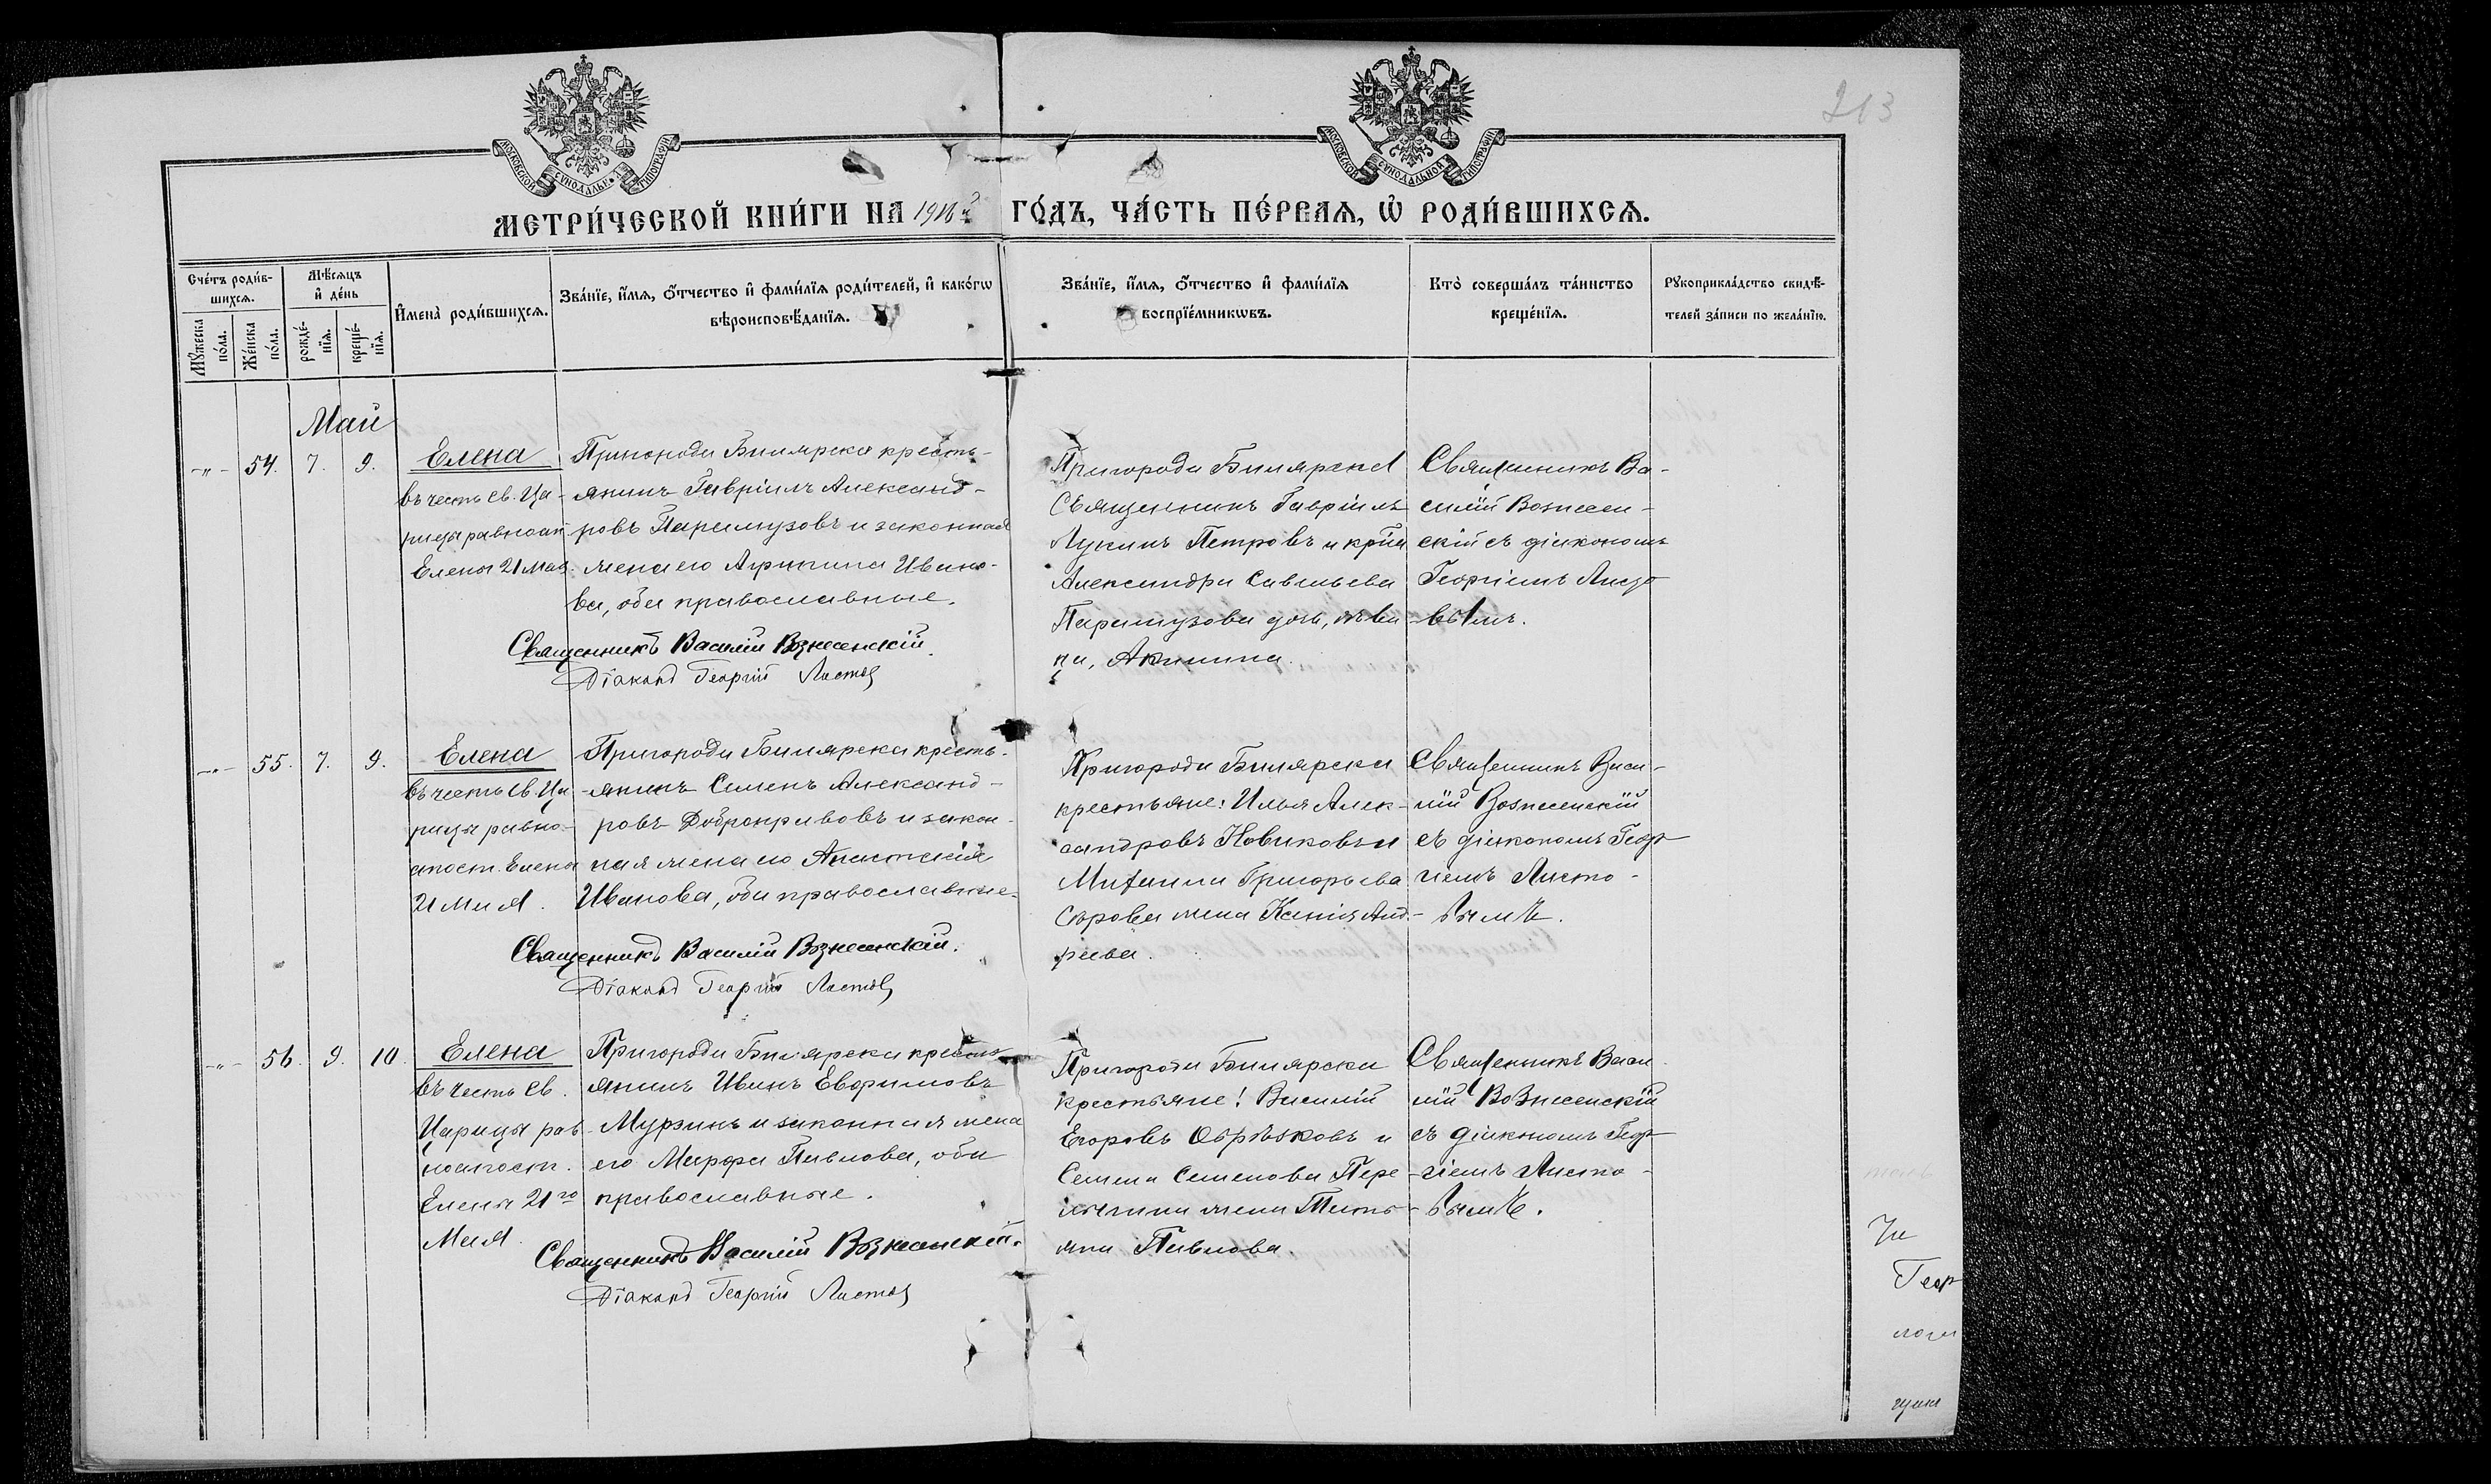 213
МОСКОВСКОЙ СѴНОДАЛЬНОЙ ТИПОГРАФІИ
МОСКОВСКОЙ СѴНОДАЛЬНОЙ ТИПОГРАФІИ
МЕТРИ́ЧЕСКОЙ КНИ́ГИ НА ГО́ДЪ, ЧА́СТЬ ПЕ́РВАЯ, Ѡ РОДИ́ВШИХСЯ.
Сче́тъ роди́в-
шихся.
Мꙋжеска по́ла.
Же́нска по́ла.
Мѣ́сяцъ
и де́нь
рожде́-
нїя.
креще́-
нїя.
Имена̀ роди́вшихся.
Зва́нїе, и́мя, о́тчество и фами́лїя роди́телей, и како́гѡ
вѣроисповѣ́данїя.
Зва́нїе, и́мя, о́тчество и фами́лїя
воспрїе́мникѡвъ.
Кто̀ соверша́лъ та́инство
креще́нїя.
Рꙋкоприкла́дство свидѣ́-
телей за́писи по жела́нїю.
Май
-"- 54. 7. 9.
Елена
въ честь св. Ца-
рицы равноап
Елены 21 мая.
Пригорода Билярска кресть-
янинъ Гавріилъ Александ-
ровъ Парамузовъ и законная
жена его Агрипина Ивано-
ва, оба православные.
Священникъ Василій Вознесенскій.
Діаконъ Георгій Листовъ
Пригорода Билярска
Священникъ Гавріилъ
Лукинъ Петровъ и
Александра Савельева
Парамузова дочь, дѣви
ца, Акилина.
Священникъ Ва-
силій Вознесен-
скій съ діакономъ
Георгіемъ Листо
вымъ.
-"- 55. 7. 9.
Елена
въ честь св. Ца
рицы равно-
апост. Елены
21 мая.
Пригорода Билярска кресть-
янинъ Семенъ Александ-
ровъ Добронравовъ и закон-
ная жена его Анастасія
Иванова, оба православные.
Священникъ Василій Вознесенскій.
Діаконъ Георгій Листовъ
Пригорода Билярска
крестьяне: Илья Алек-
сандровъ Новиковъ и
Григорьева
жена Ксенія Анд-
реева.
Священникъ Васи-
лій Вознесенскій
съ діакономъ Геор
гіемъ Листо-
вымъ.
-"- 56. 9. 10.
Елена
въ честь св.
Царицы рав
ноапост.
Елены 21го
Мая.
Пригорода Билярска кресть
янинъ Иванъ Евфимовъ
Мурзинъ и законная жена
его Марфа Павлова, оба
православные.
Священникъ Василій Вознесенскій.
Діаконъ Георгій Листовъ
Пригорода Билярска
крестьяне: Василій
Егоровъ Обрѣзковъ и
Семена Семенова
жена Тать
яна Павлова.
Священникъ Васи
лій Вознесенскій
съ діакономъ Геор
гіемъ Листо-
вымъ.
Геор